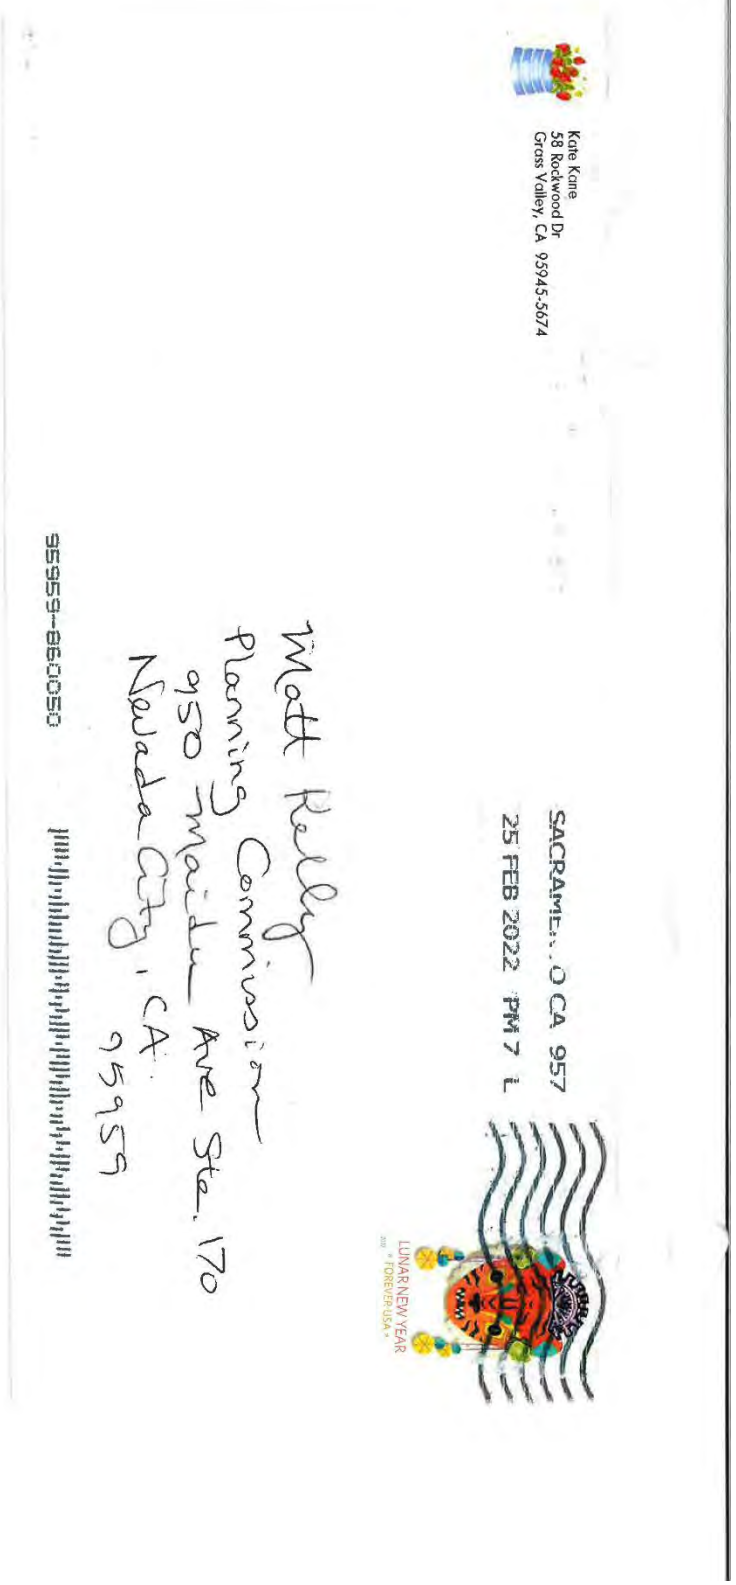 Kate Kane
58 Rockwood Dr
Grass Valley, CA 95945-5674
SACRAME... O CA 957
25 FEB 2022 PM 7 L
LUNAR NEW YEAR
FOREVER USA
Matt Kelly
Planning Commission
950 Maidu Ave Ste. 170
Nevada City, CA.
95959
95959-860050